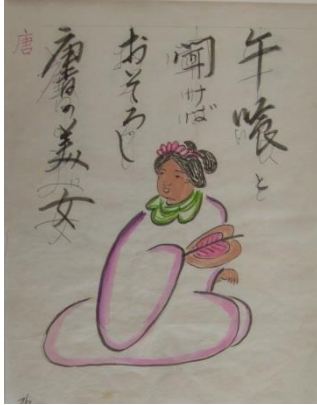 午喰と
聞けば
おそろし
唐の美女
唐